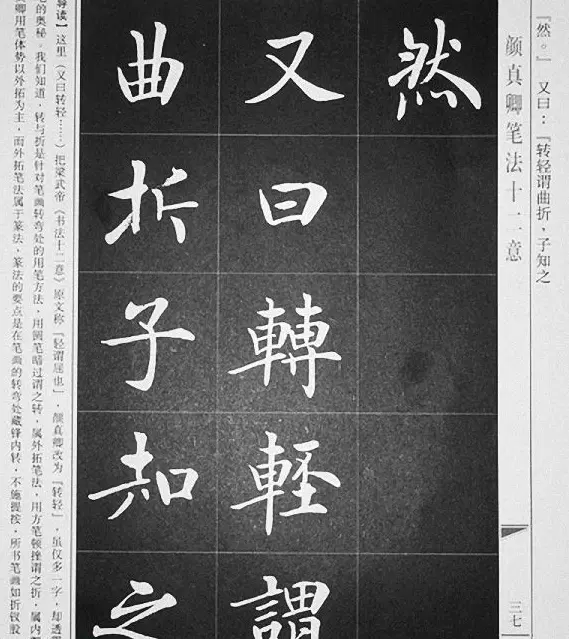 『然。』 又曰：『转轻谓曲折，子知之
颜真卿笔法十二意
三七
然
又曰轉輕謂
曲折子知之
导读】这里（又曰转轻……）把梁武帝《书法十二意》原文称『轻谓屈也』，颜真卿改为『转轻』，虽仅多一字，却透
的奥秘。我们知道，转与折是针对笔画转弯处的用笔方法，用圆笔暗过谓之转，属外拓笔法，用方笔顿挫谓之折，属内
卿用笔体势以外拓为主，而外拓笔法属于篆法，篆法的要点是在笔画的转弯处藏锋内转，不施提按，所书笔画如折钗股